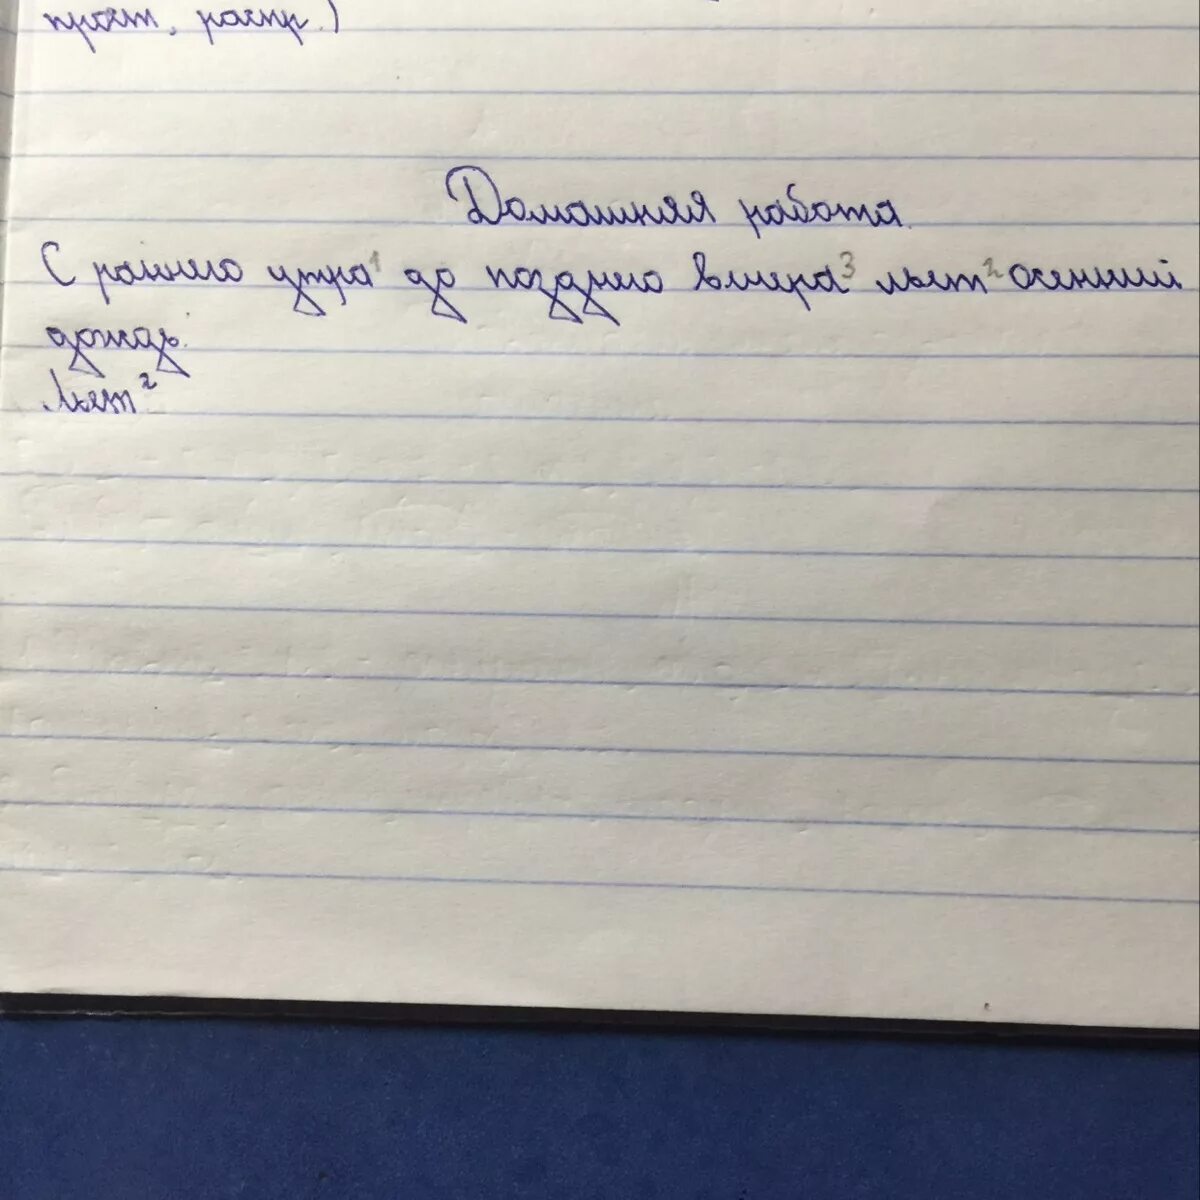 прост, распр.)
Домашняя работа.
С раннего утра¹ до позднего вечера³ льет² осенний
дождь.
Льет²